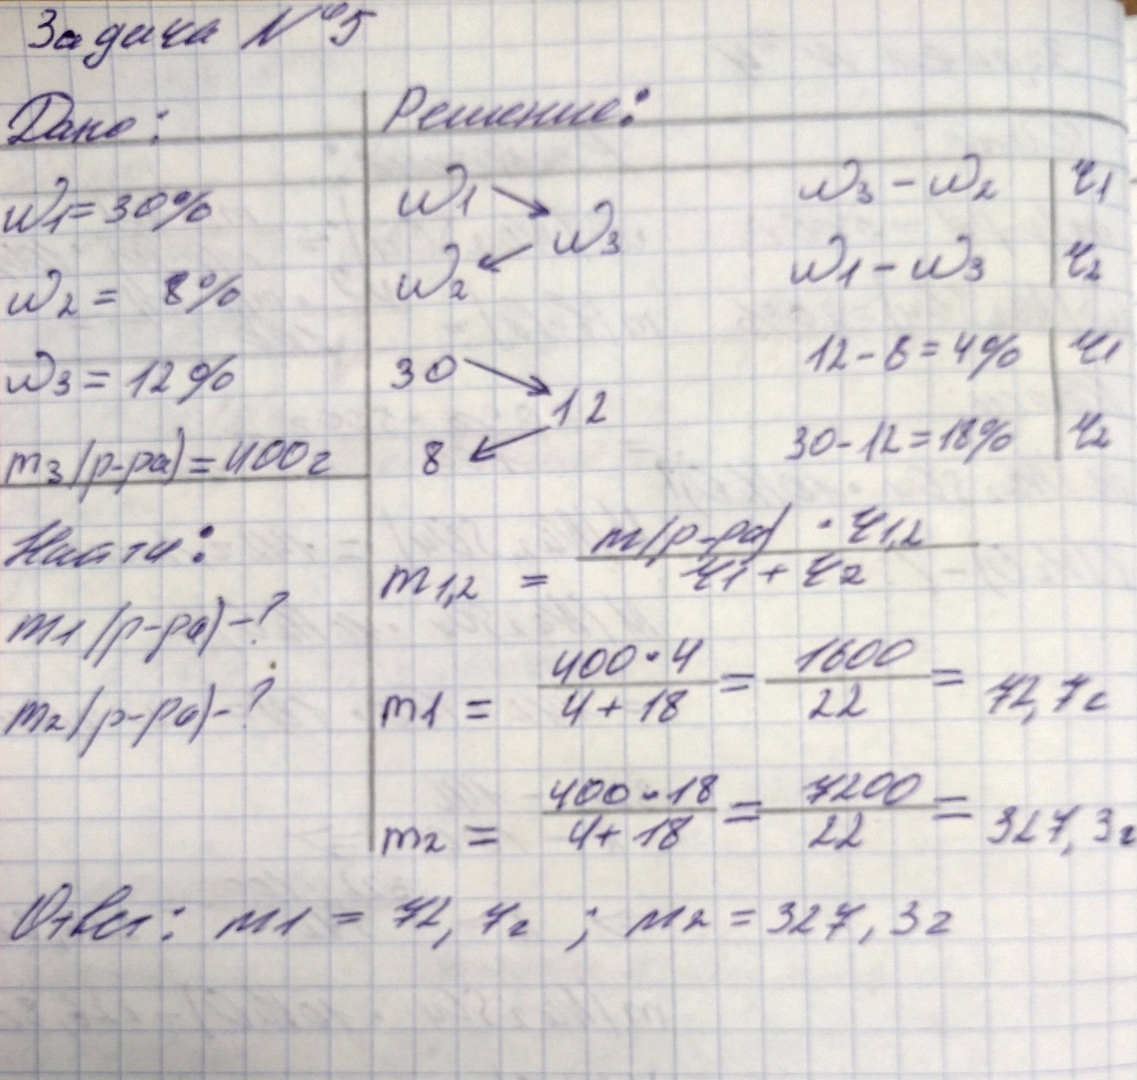 Задача №5
Дано:
ω1 = 30%
ω2 = 8%
ω3 = 12%
m3 (р-ра) = 400г
Найти:
m1 (р-ра) - ?
m2 (р-ра) - ?
Решение:
ω1 ω3 - ω2 | ч1
ω3
ω2 ω1 - ω3 | ч2
30 12 - 8 = 4% | ч1
12
8 30 - 12 = 18% | ч2
m1,2 = m(р-ра) · ч1,2 / ч1 + ч2
m1 = 400 · 4 / 4 + 18 = 1600 / 22 = 72,7г
m2 = 400 · 18 / 4 + 18 = 7200 / 22 = 327,3г
Ответ: m1 = 72,7г ; m2 = 327,3г